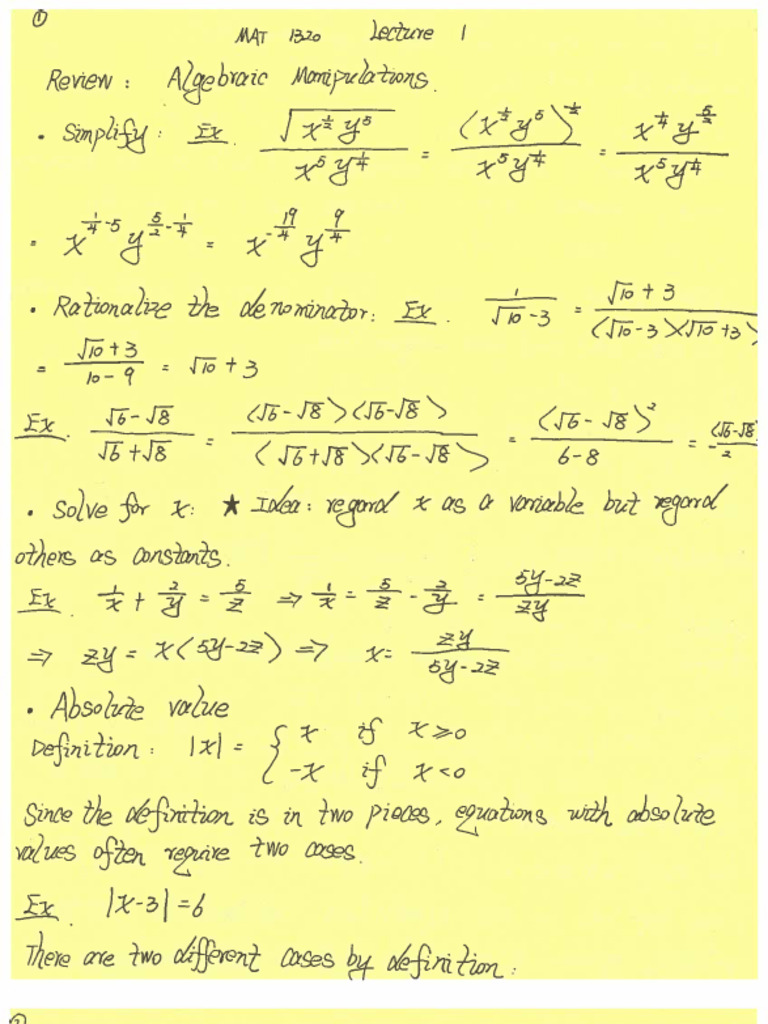 ①
MAT 1320 Lecture 1
Review: Algebraic Manipulations.
• Simplify: Ex. √(x^(1/2) y^5) / (x^5 y^(1/4)) = (x^(1/2) y^5)^(1/2) / (x^5 y^(1/4)) = x^(1/4) y^(5/2) / (x^5 y^(1/4))
= x^(1/4-5) y^(5/2-1/4) = x^(-19/4) y^(9/4)
• Rationalize the denominator: Ex. 1/(√10-3) = (√10+3)/((√10-3)(√10+3))
= (√10+3)/(10-9) = √10+3
Ex. (√6-√8)/(√6+√8) = (√6-√8)(√6-√8)/((√6+√8)(√6-√8)) = (√6-√8)²/(6-8) = (√6-√8)/-2
• Solve for x: ★ Idea: regard x as a variable but regard
others as constants.
Ex 1/x + 2/y = 5/z ⇒ 1/x = 5/z - 2/y = (5y-2z)/(zy)
⇒ zy = x(5y-2z) ⇒ x = zy/(5y-2z)
• Absolute value
Definition: |x| = { x if x≥0
-x if x<0
Since the definition is in two pieces, equations with absolute
values often require two cases.
Ex. |x-3|=6
There are two different cases by definition: